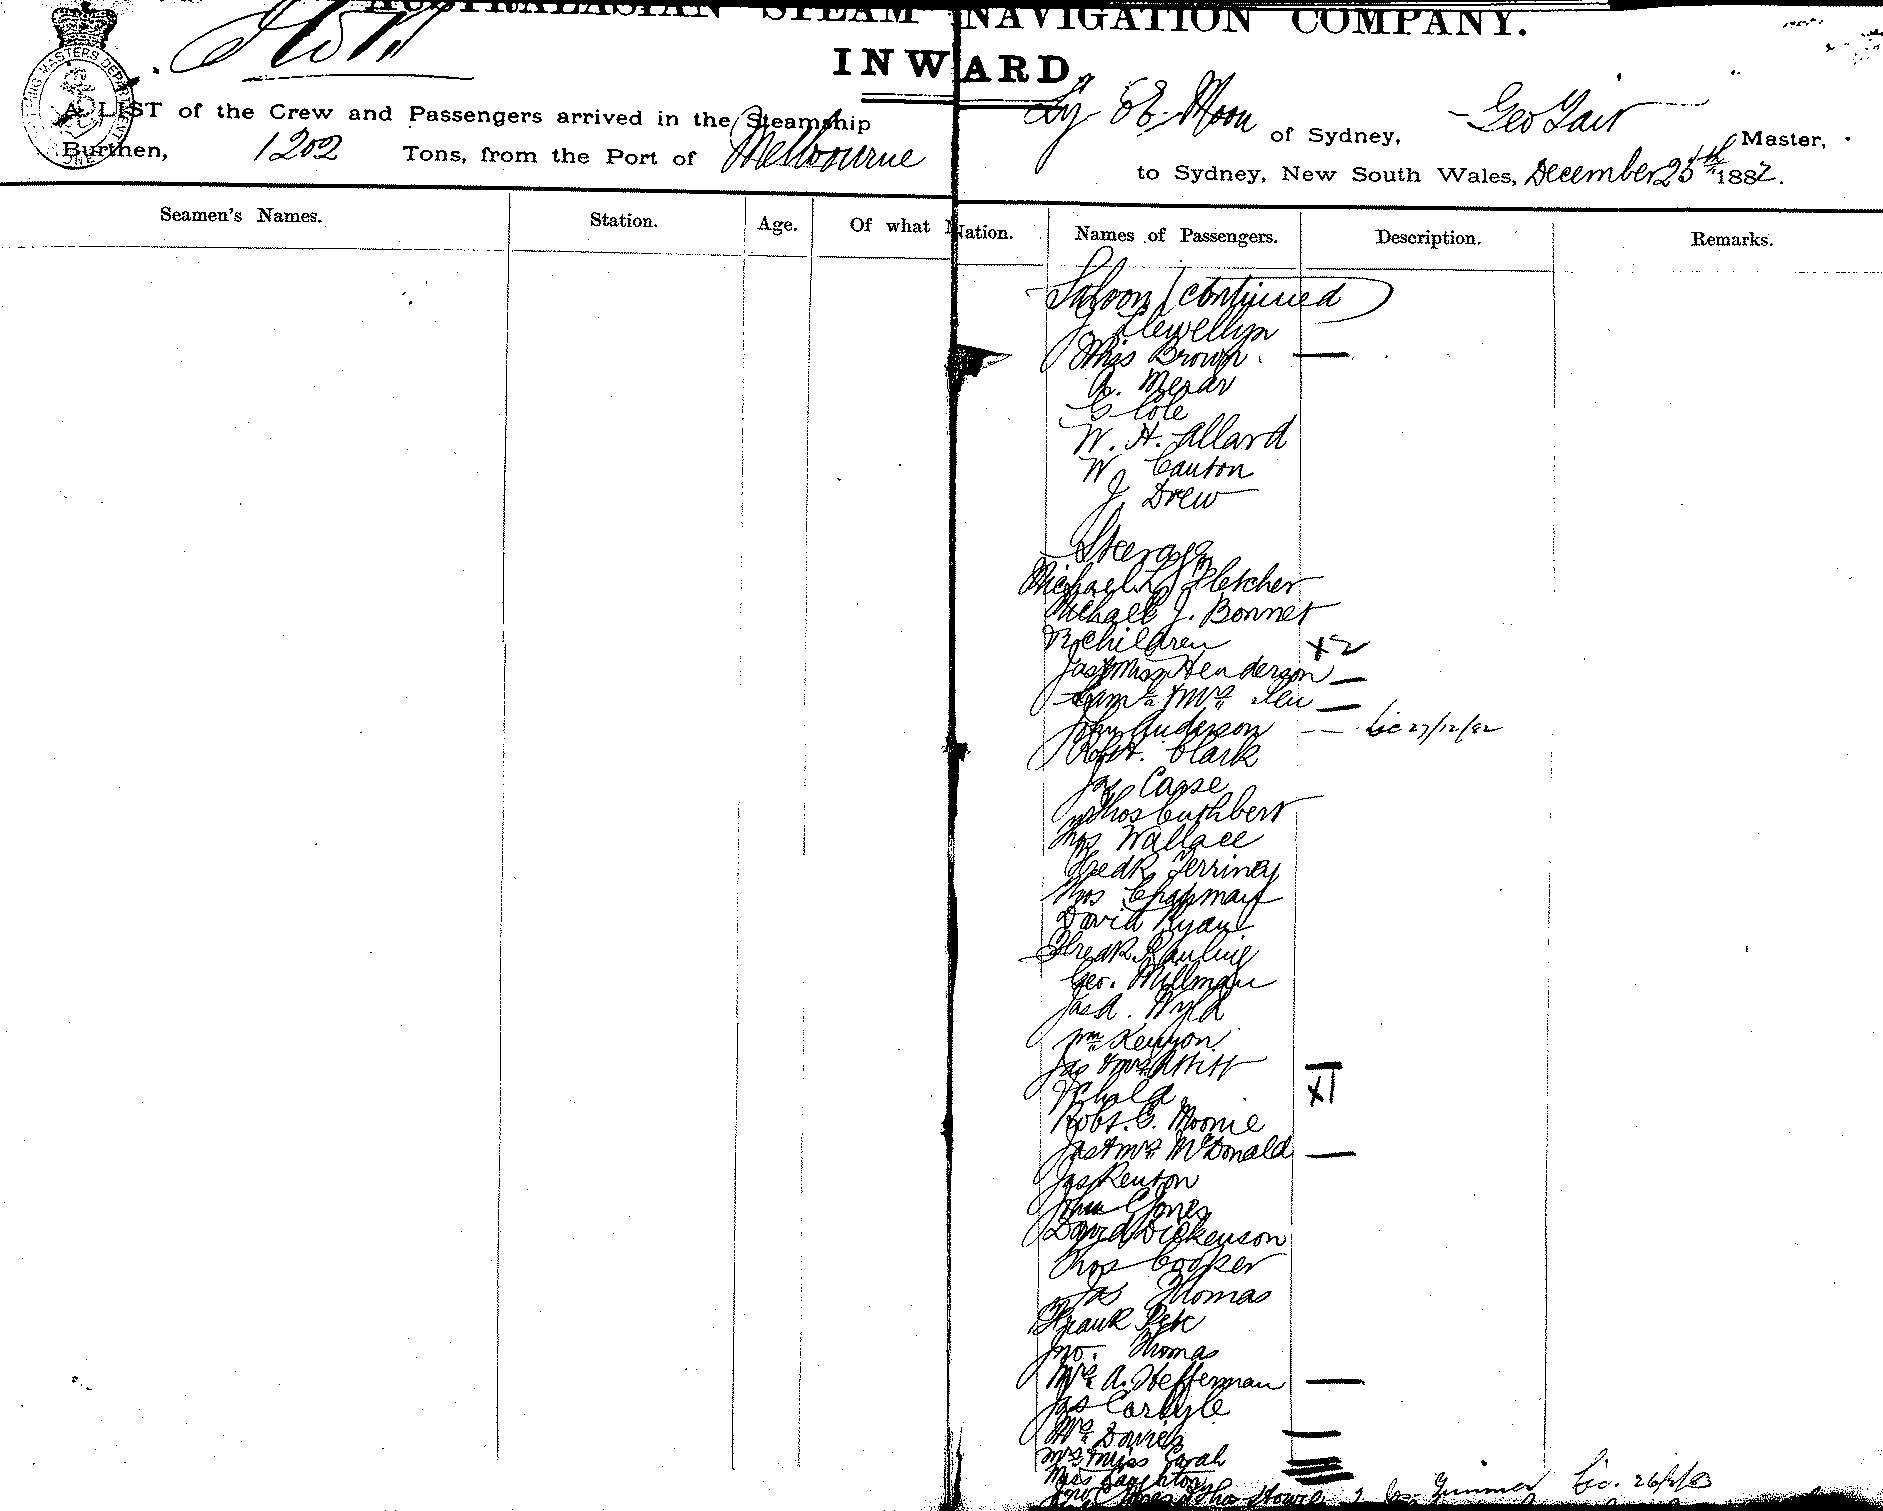 AUSTRALASIAN STEAM NAVIGATION COMPANY.
INWARD
A LIST of the Crew and Passengers arrived in the Steamship Ly Ee Moon of Sydney, Geo Tait Master,
Burthen, 1202 Tons, from the Port of Melbourne to Sydney, New South Wales, December 25th 1882.
Seamen's Names. Station. Age. Of what Nation. Names of Passengers. Description. Remarks.
Saloon (continued)
J Llewellyn
Miss Brown
A. Mezar
G Cole
W. H. Allard
W Canton
J Drew
Steerage
Michael Fletcher
Michael J. Bonnet
children x2
Jas Henderson
Mrs
John Anderson Lic 27/12/82
Robt. Clark
Jas Casse
Thos Cuthbert
Thos Wallace
Fredk Ferriney
Thos Chapman
David Ryan
Fredk Pauling
Geo. Millman
Jas A. Wyld
Wm Kenyon
Jas & Mrs
child x1
Robt. G. Moonie
Jas & Mrs McDonald
Jas Renton
John Jones
David Dickenson
Thos Cooper
Jas Thomas
Frank
Jno. Thomas
Mrs A. Hefferman
Jas Carlyle
Mrs Davies
Mrs & Miss Sarah
Miss
Lic.